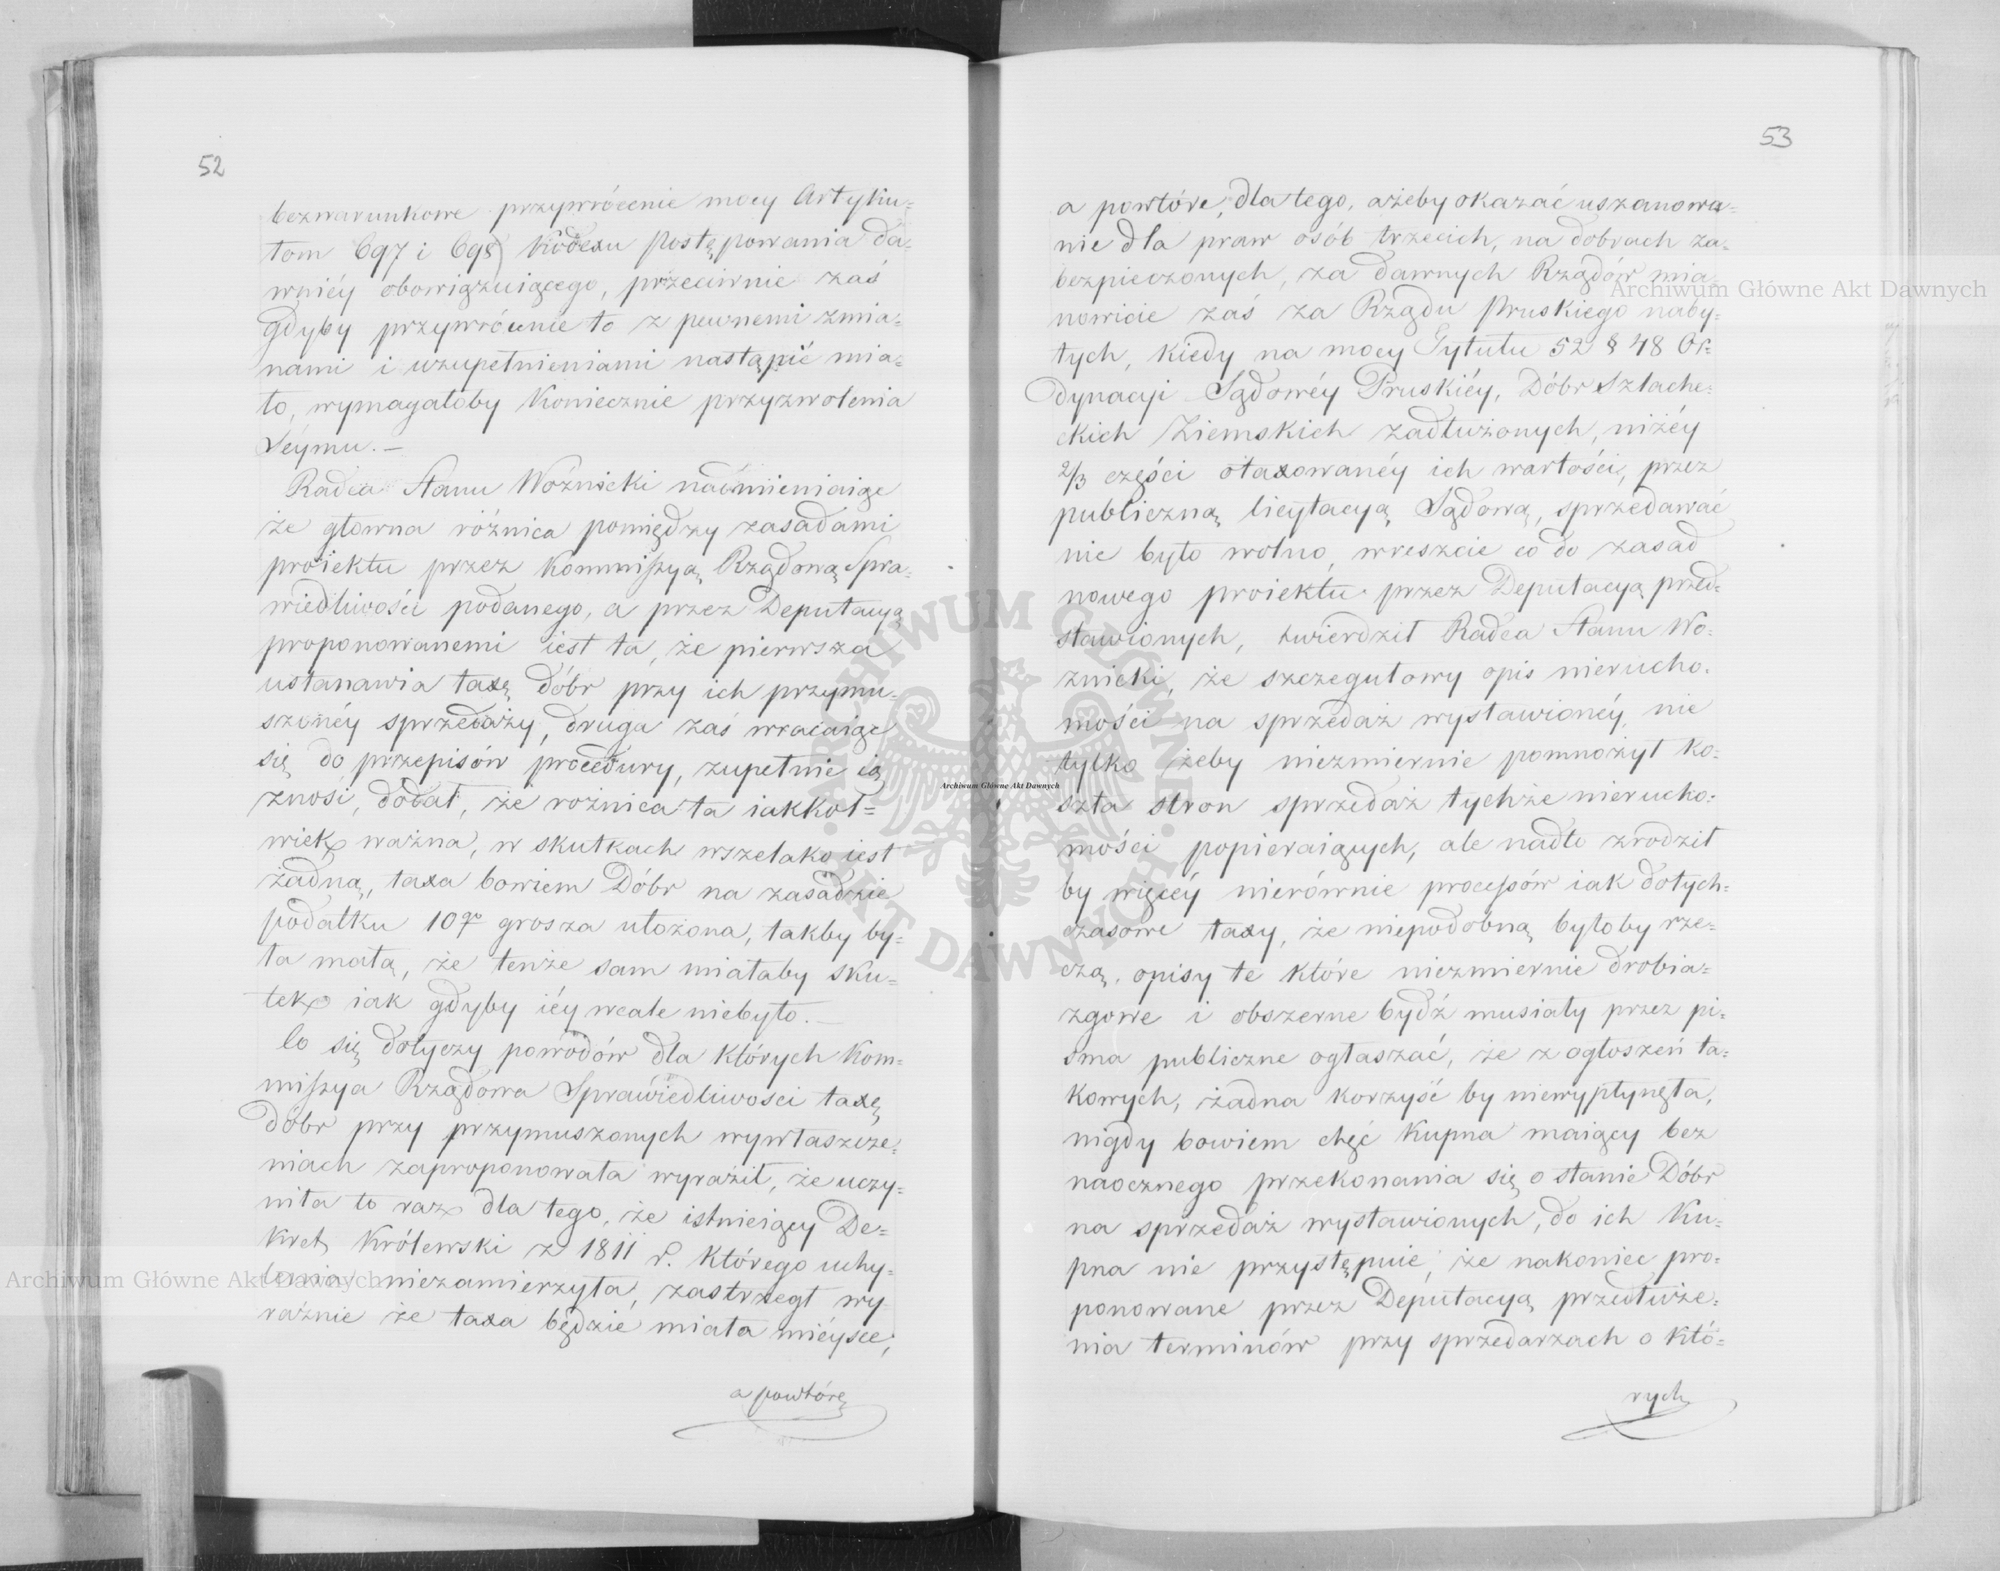 52
bezwarunkowe przywrócenie mocy Artyku=
łom 697 i 698 Kodexu Postępowania da=
wniéy obowiązuiącego, przeciwnie zaś
gdyby przywrócenie to z pewnemi zmia=
nami i uzupełnieniami nastąpić mia=
ło, wymagałoby koniecznie przyzwolenia
Séymu. —
Radca Stanu Woźnicki nadmieniaiąc
że głowna różnica pomiędzy zasadami
proiektu przez Kommissyą Rządową Spra=
wiedliwości podanego, a przez Deputacyą
proponowanemi iest ta, że pierwsza
ustanawia taxę dóbr przy ich przymu=
szonéy sprzedaży, druga zaś wracaiąc
się do przepisów procedury, zupełnie ią
znosi, dodał, że rożnica ta iakkol=
wiek ważna, w skutkach wszelako iest
żadną, taxa bowiem Dóbr na zasadzie
podatku 10go grosza ułożona, takby by=
ła małą, że tenże sam miałaby sku=
tek iak gdyby iéy wcale niebyło. —
Co się dotyczy powodów dla których Kom=
missya Rządowa Sprawiedliwości taxę
dóbr przy przymuszonych wywłaszcze=
niach zaproponowała wyraził, że uczy=
niła to raz dla tego, że istnieiący De=
kret Królewski z 1811 r. którego uchy=
lenia niezamierzyła, zastrzegł wy=
raźnie że taxa będzie miała miéysce,
a powtóre
53
a powtóre, dla tego, ażeby okazać uszanowa=
nie dla praw osób trzecich, na dobrach za=
bezpieczonych, za dawnych Rządów mia=
nowicie zaś za Rządu Pruskiego naby=
tych, kiedy na mocy Tytułu 52 § 48 Or=
dynacyi Sądowéy Pruskiéy, Dóbr Szlache=
ckich Ziemskich zadłużonych, niżéy
2/3 części otaxowanéy ich wartości, przez
publiczną licytacyą Sądową, sprzedawać
nie było wolno, wreszcie co do zasad
nowego proiektu przez Deputacyą przed=
stawionych, twierdził Radca Stanu Wo=
znicki, że szczegułowy opis nierucho=
mości na sprzedaż wystawionéy, nie
tylko żeby niezmiernie pomnożył ko=
szta stron sprzedaż tychże nierucho=
mości popieraiących, ale nadto zrodził
by więcéy nierównie processów iak dotych=
czasowe taxy, że niepodobną byłoby rze=
czą, opisy te które niezmiernie drobia=
zgowe i obszerne bydź musiały przez pi=
sma publiczne ogłaszać, że z ogłoszeń ta=
kowych, żadna korzyść by niewypłynęła,
nigdy bowiem chęć kupna maiący bez
naocznego przekonania się o stanie Dóbr
na sprzedaż wystawionych, do ich ku=
pna nie przystępuie, że nakoniec pro=
ponowane przez Deputacyą przedłuże=
nia terminów przy sprzedarzach o któ=
rych
Archiwum Główne Akt Dawnych
Archiwum Główne Akt Dawnych
Archiwum Główne Akt Dawnych
ARCHIWUM GŁÓWNE AKT DAWNYCH